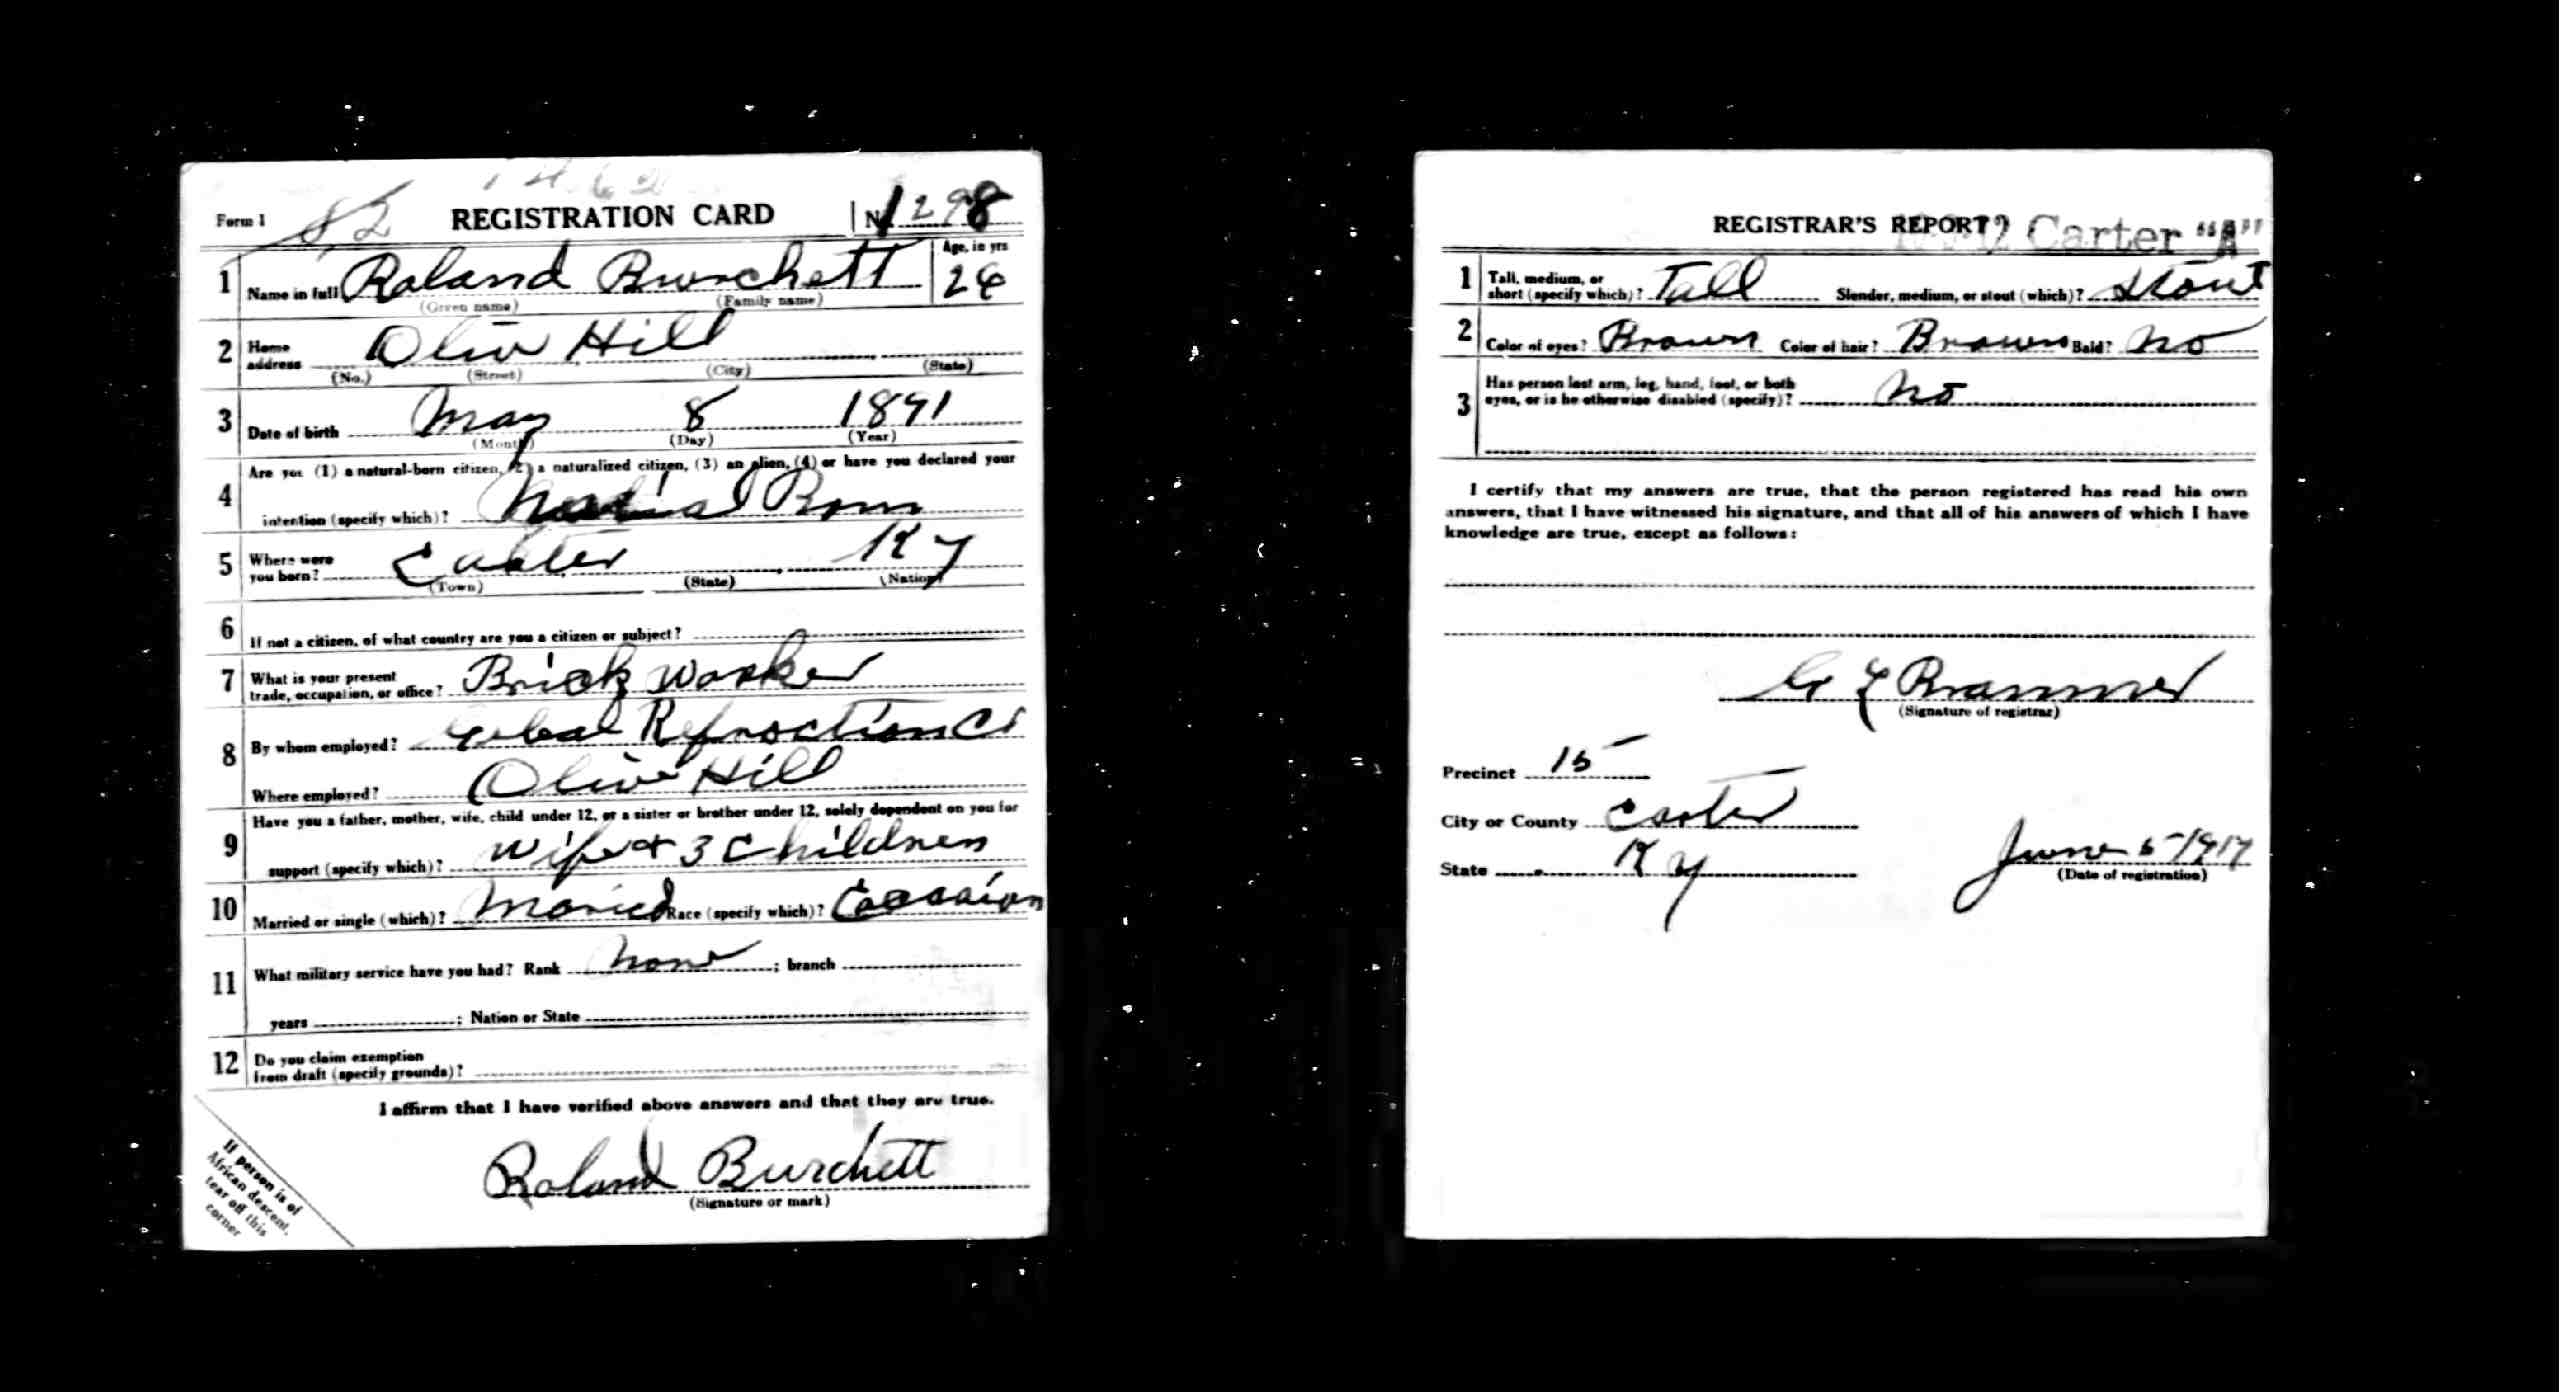 Form 1 82 REGISTRATION CARD No. 1298
1 Name in full Roland Burchett Age, in yrs 26
(Given name) (Family name)
2 Home address Oliv Hill
(No.) (Street) (City) (State)
3 Date of birth May 8 1891
(Month) (Day) (Year)
4 Are you (1) a natural-born citizen, (2) a naturalized citizen, (3) an alien, (4) or have you declared your
intention (specify which)? Born
5 Where were you born? Carter Ky
(Town) (State) (Nation)
6 If not a citizen, of what country are you a citizen or subject?
7 What is your present trade, occupation, or office? Brick Worker
8 By whom employed?
Where employed? Olive Hill
9 Have you a father, mother, wife, child under 12, or a sister or brother under 12, solely dependent on you for
support (specify which)? Wife + 3 Children
10 Married or single (which)? Maried Race (specify which)?
11 What military service have you had? Rank None ; branch
years ; Nation or State
12 Do you claim exemption from draft (specify grounds)?
I affirm that I have verified above answers and that they are true.
Roland Burchett
(Signature or mark)
If person is of
African descent,
tear off this
corner
REGISTRAR'S REPORT Carter "A"
1 Tall, medium, or short (specify which)? Tall Slender, medium, or stout (which)? Stout
2 Color of eyes? Brown Color of hair? Brown Bald? No
3 Has person lost arm, leg, hand, foot, or both eyes, or is he otherwise disabled (specify)? No
I certify that my answers are true, that the person registered has read his own
answers, that I have witnessed his signature, and that all of his answers of which I have
knowledge are true, except as follows:
Brammer
(Signature of registrar)
Precinct 15
City or County Carter
State Ky June 5-1917
(Date of registration)